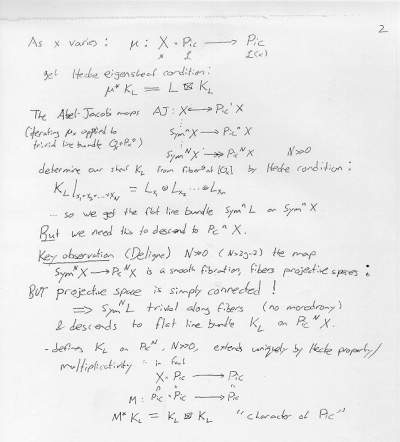 2
As x varies : μ : X × Pic ⟶ Pic
x ℒ ℒ(x)
get Hecke eigensheaf condition :
μ* K_L = L ⊠ K_L
The Abel-Jacobi maps AJ : X ↪ Pic¹ X
(iterating μ_x applied to
trivial line bundle Symⁿ X ⟶ Picⁿ X
Sym^N X ↠ Pic^N X N≫0
determine our sheaf K_L from fiber at [O_X] by Hecke condition :
K_L|_{x₁+x₂+…+x_N} = L_{x₁} ⊗ L_{x₂} … ⊗ L_{x_N}
… so we get the flat line bundle Symⁿ L on Symⁿ X
But we need this to descend to Picⁿ X.
Key observation (Deligne) N≫0 (N>2g-2) the map
Sym^N X ⟶ Pic^N X is a smooth fibration, fibers projective spaces :
BUT projective space is simply connected !
⟹ Sym^N L trivial along fibers (no monodromy)
& descends to flat line bundle K_L on Pic^N X.
- defines K_L on Pic^N, N≫0, extends uniquely by Hecke property/
multiplicativity : in fact
X × Pic ⟶ Pic
M : Pic × Pic ⟶ Pic
M* K_L = K_L ⊠ K_L "character of Pic"